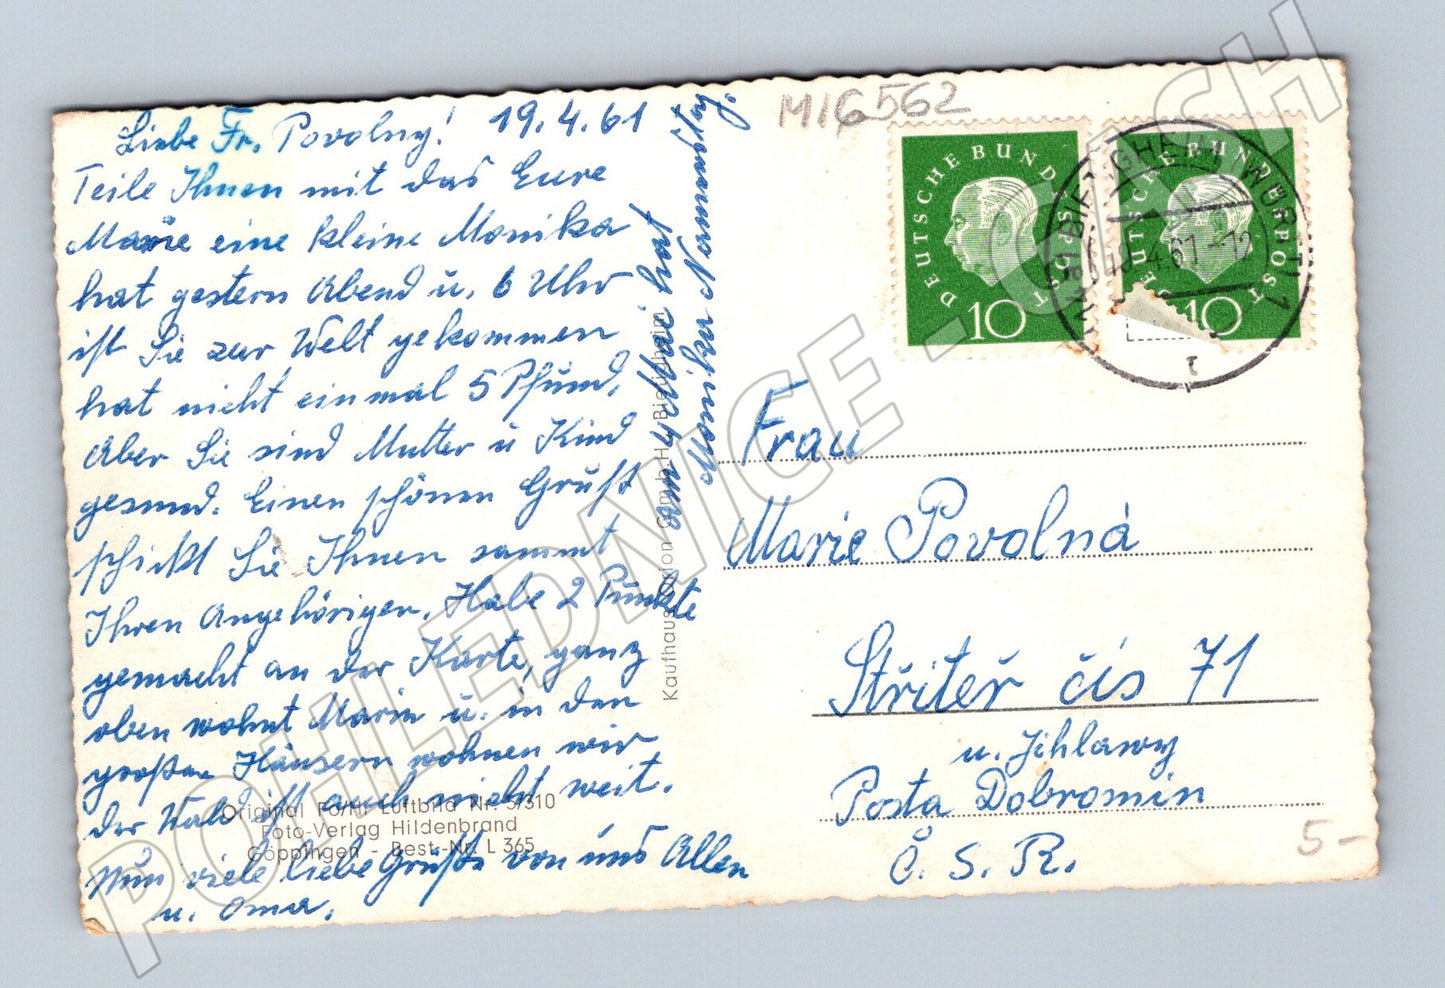 MIG562
Liebe Fr. Povolny! 19.4.61
Teile Ihnen mit das Eure
Marie eine kleine Monika
hat gestern Abend u. 6 Uhr
ist Sie zur Welt gekommen
hat nicht einmal 5 Pfund,
Aber Sie sind Mutter u Kind
gesund. Einen schönen Gruß
schickt Sie Ihnen sammt
Ihren Angehörigen, Habe 2 Punkte
gemacht an der Karte, ganz
oben wohnt Marie u. in den
großen Häusern wohnen wir
der Wald ist auch nicht weit.
Nun viele liebe Grüße von uns Allen
u. Oma.
am 4 Mai hat
Monika Namenstag.
Original Luftbild Nr. 5/310
Foto-Verlag Hildenbrand
Göppingen - Best.-Nr. L 365
Kaufhaus GmbH Bietigheim
DEUTSCHE BUNDESPOST
10
DEUTSCHE BUNDESPOST
10
BIETIGHEIM (WÜRTT) 1
.4.61.-12
r
Frau
Marie Povolná
Střiteř čís 71
u. Jihlawy
Posta Dobronin
Č. S. R.
5-
POHLEDNICE - CASH